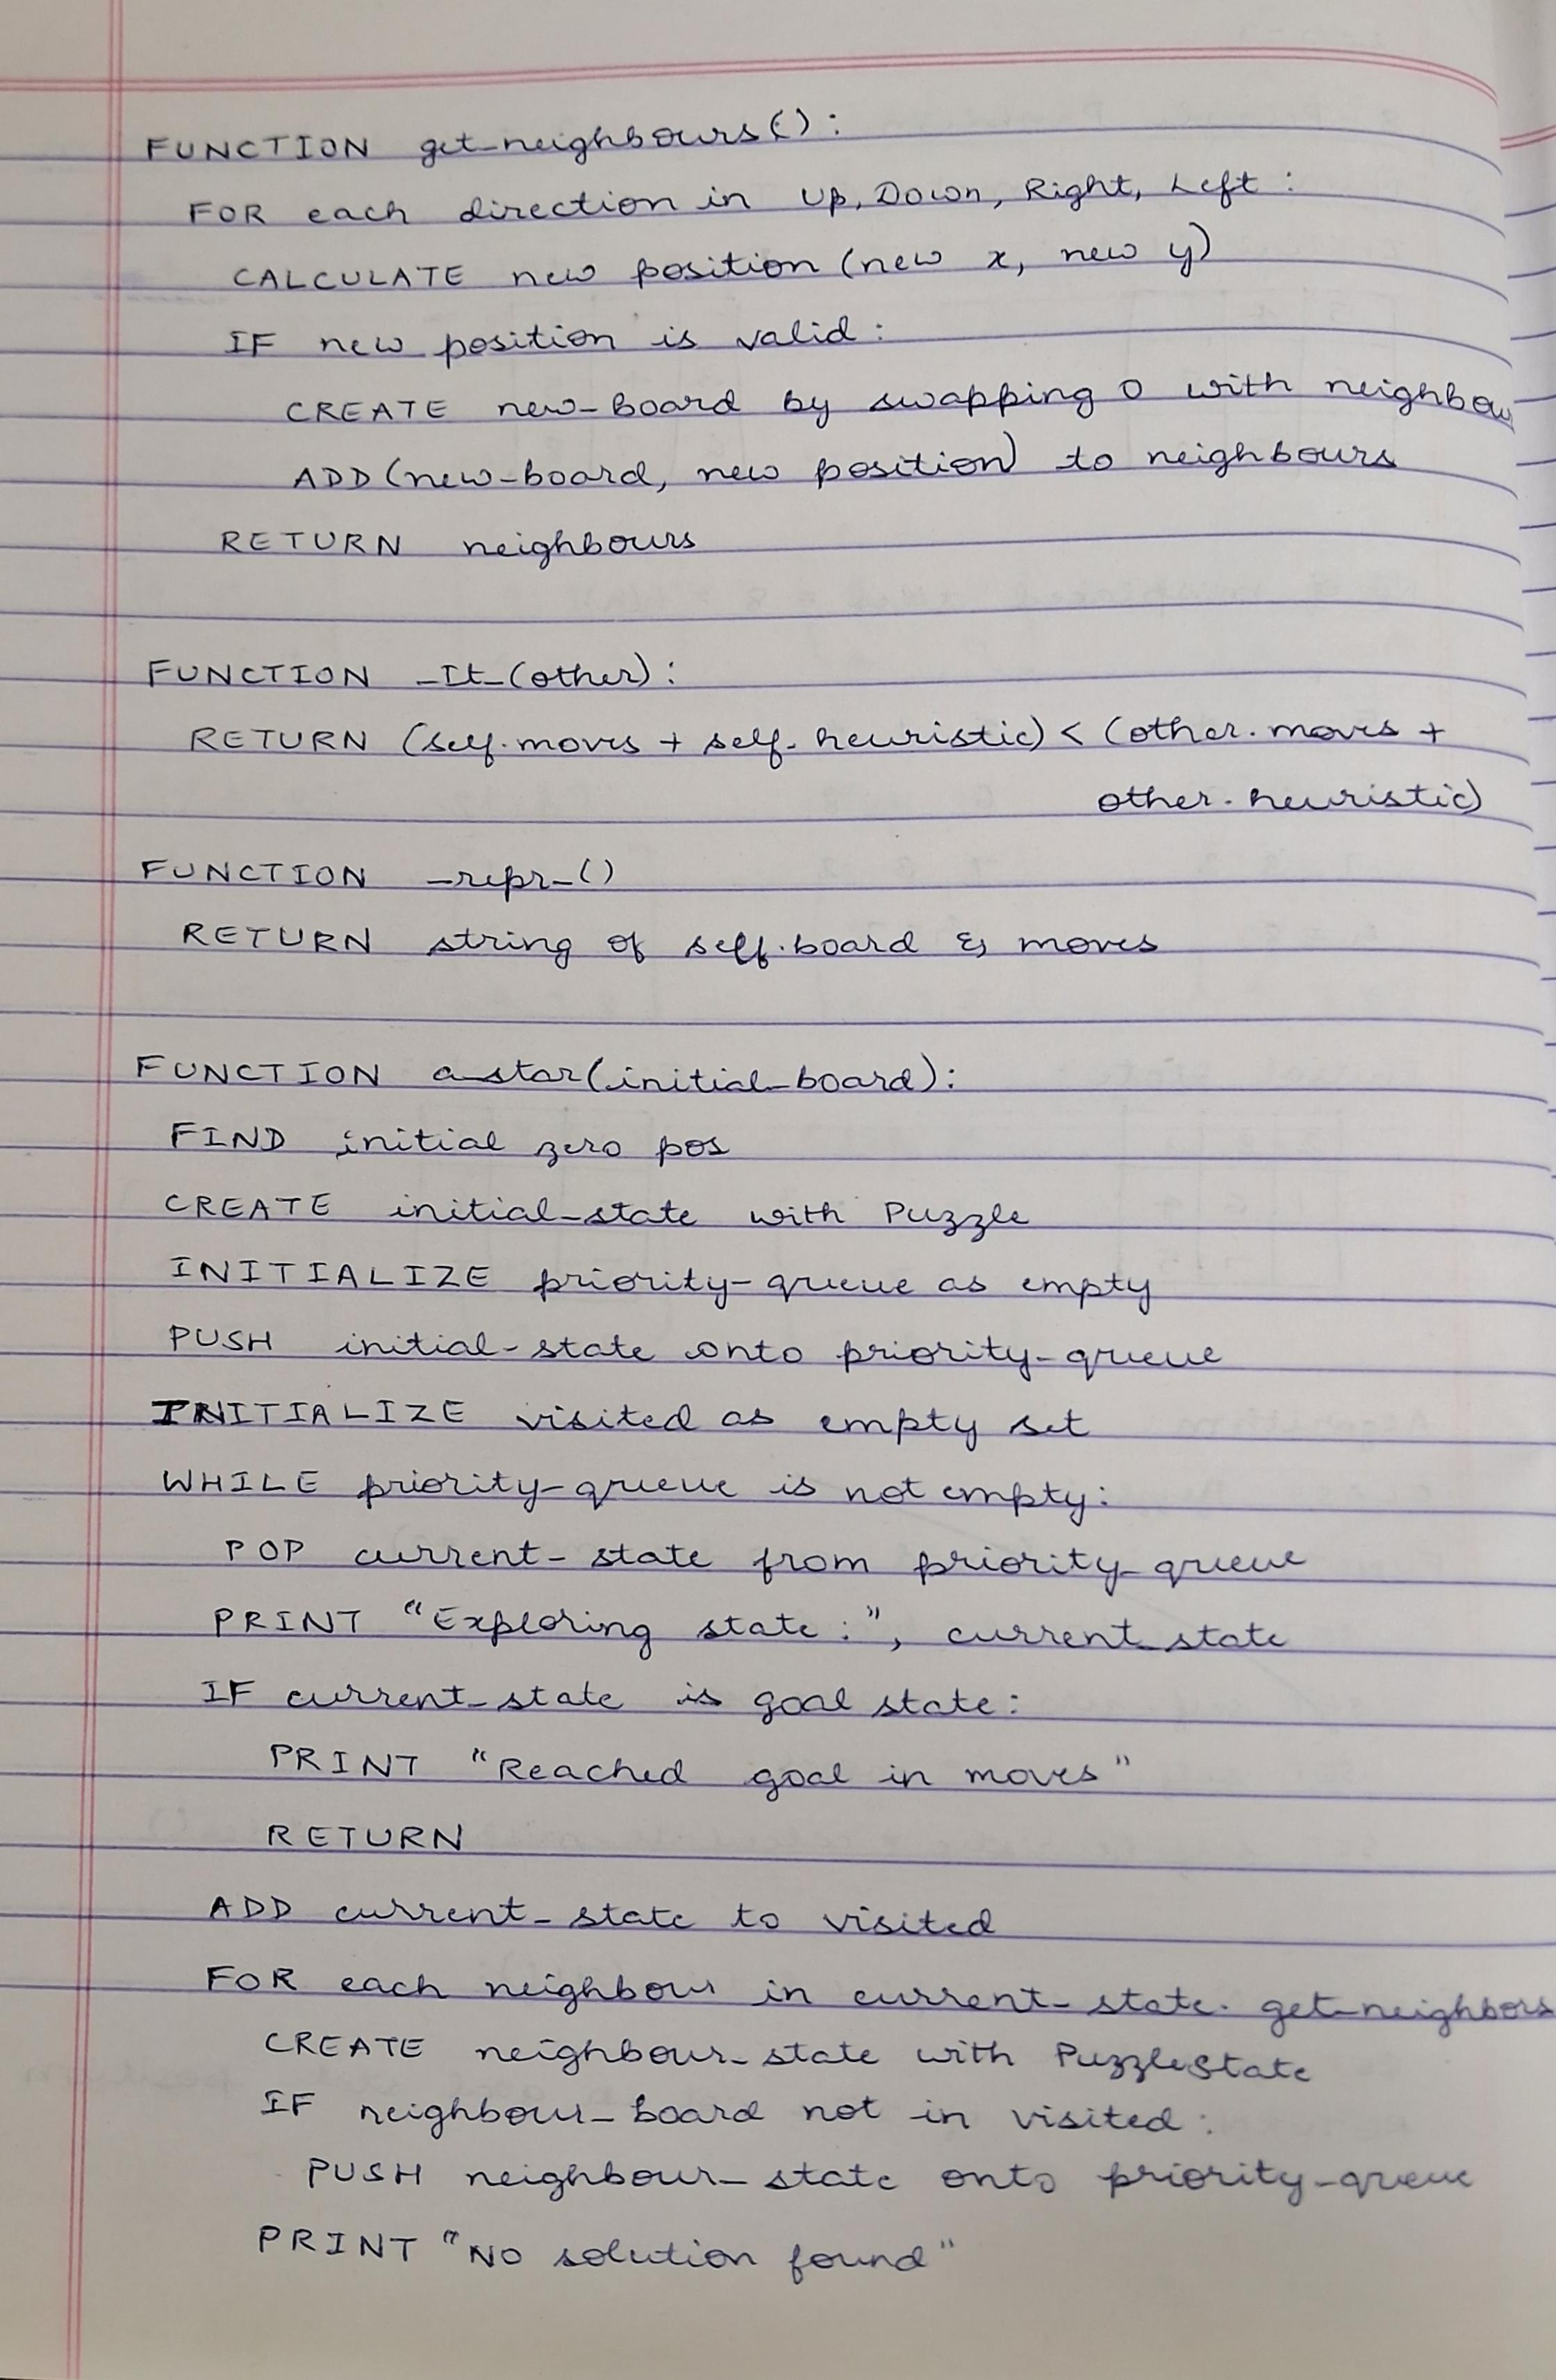 FUNCTION get_neighbours():
FOR each direction in Up, Down, Right, Left:
CALCULATE new position (new x, new y)
IF new position is valid:
CREATE new-board by swapping 0 with neighbou
ADD (new-board, new position) to neighbours
RETURN neighbours
FUNCTION _It_(other):
RETURN (self.moves + self.heuristic) < (other.moves +
other.heuristic)
FUNCTION _repr_()
RETURN string of self.board & moves
FUNCTION a_star(initial_board):
FIND initial zero pos
CREATE initial_state with Puzzle
INITIALIZE priority-queue as empty
PUSH initial-state onto priority-queue
INITIALIZE visited as empty set
WHILE priority-queue is not empty:
POP current-state from priority_queue
PRINT "Exploring state:", current_state
IF current_state is goal state:
PRINT "Reached goal in moves"
RETURN
ADD current_state to visited
FOR each neighbour in current-state.get_neighbors
CREATE neighbour_state with PuzzleState
IF neighbour_board not in visited:
PUSH neighbour_state onto priority-queue
PRINT "No solution found"